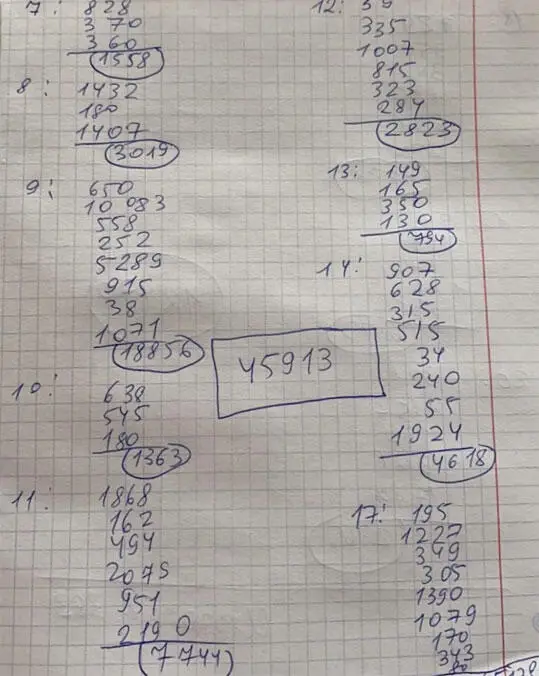 7: 828
370
360
1558
8: 1432
180
1407
3019
9: 650
10 083
558
252
5289
915
38
1071
18856
10: 638
545
180
1363
11: 1868
162
494
2075
951
2190
7744
45913
12: 39
335
1007
815
323
284
2823
13: 149
165
350
130
794
14: 907
628
315
515
34
240
55
1924
4618
17: 195
1227
349
305
1390
1079
170
343
80